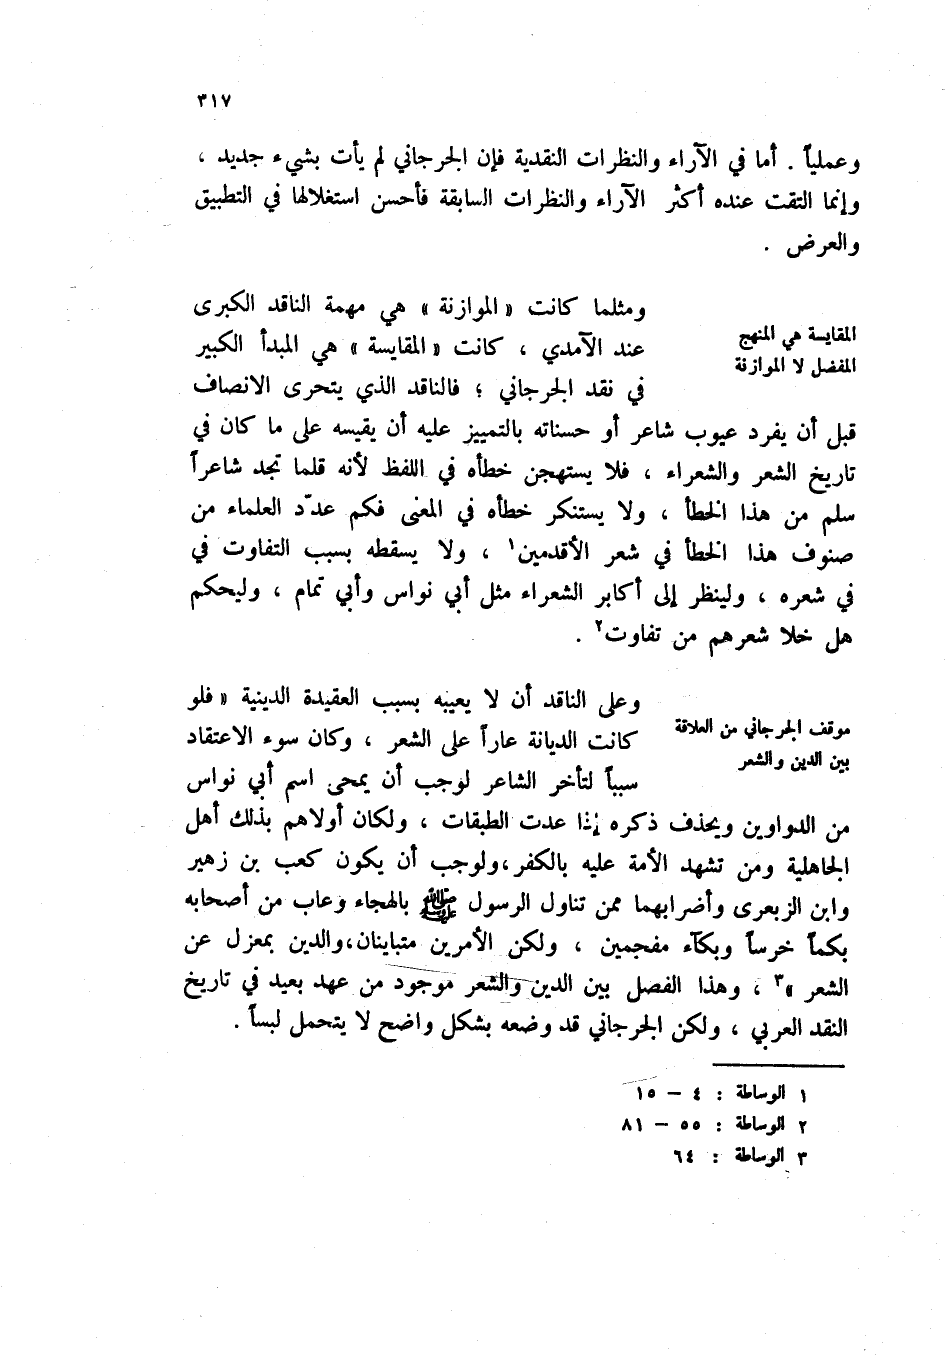 ٣١٧
وعملياً . أما في الآراء والنظرات النقدية فإن الجرجاني لم يأت بشيء جديد ،
وإنما التقت عنده أكثر الآراء والنظرات السابقة فأحسن استغلالها في التطبيق
والعرض .
المقايسة هي المنهج
المفضل لا الموازنة
ومثلما كانت « الموازنة » هي مهمة الناقد الكبرى
عند الآمدي ، كانت « المقايسة » هي المبدأ الكبير
في نقد الجرجاني ؛ فالناقد الذي يتحرى الانصاف
قبل أن يفرد عيوب شاعر أو حسناته بالتمييز عليه أن يقيسه على ما كان في
تاريخ الشعر والشعراء ، فلا يستهجن خطأه في اللفظ لأنه قلما تجد شاعراً
سلم من هذا الخطأ ، ولا يستنكر خطأه في المعنى فكم عدّد العلماء من
صنوف هذا الخطأ في شعر الأقدمين١ ، ولا يسقطه بسبب التفاوت في
في شعره ، ولينظر إلى أكابر الشعراء مثل أبي نواس وأبي تمام ، وليحكم
هل خلا شعرهم من تفاوت٢ .
موقف الجرجاني من العلاقة
بين الدين والشعر
وعلى الناقد أن لا يعيبه بسبب العقيدة الدينية « فلو
كانت الديانة عاراً على الشعر ، وكان سوء الاعتقاد
سبباً لتأخر الشاعر لوجب أن يمحى اسم أبي نواس
من الدواوين ويحذف ذكره إذا عدت الطبقات ، ولكان أولاهم بذلك أهل
الجاهلية ومن تشهد الأمة عليه بالكفر ،ولوجب أن يكون كعب بن زهير
وابن الزبعرى وأضرابهما ممن تناول الرسول ﷺ بالهجاء وعاب من أصحابه
بكماً خرساً وبكآء مفحمين ، ولكن الأمرين متباينان ،والدين بمعزل عن
الشعر »٣ ، وهذا الفصل بين الدين والشعر موجود من عهد بعيد في تاريخ
النقد العربي ، ولكن الجرجاني قد وضعه بشكل واضح لا يتحمل لبساً .
١ الوساطة : ٤ – ١٥
٢ الوساطة : ٥٥ – ٨١
٣ الوساطة : ٦٤